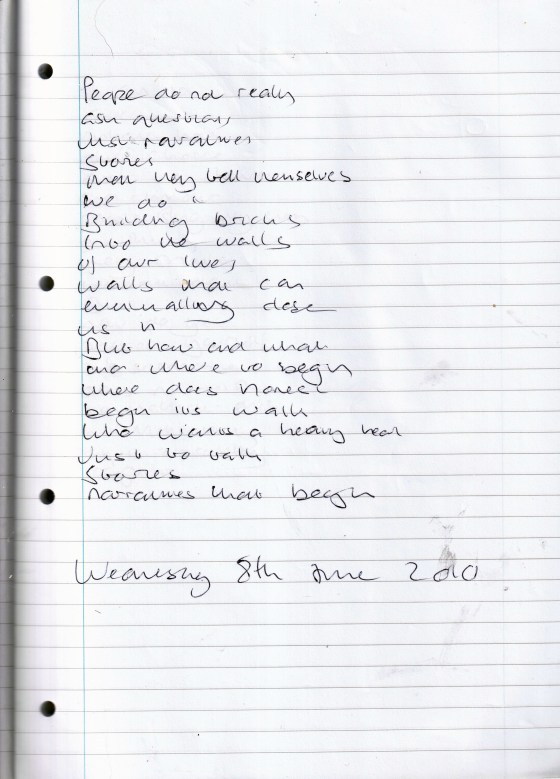 People do not really
ask questions
Just narratives
Stories
that they tell themselves
we do
Building bricks
Into the walls
of our lives
Walls that can
eventually close
us in
But how and what
and where to begin
Where does honest
begin its walk
Who wants a heavy heart
Just to talk
Stories
narratives that begin
Wednesday 8th June 2010